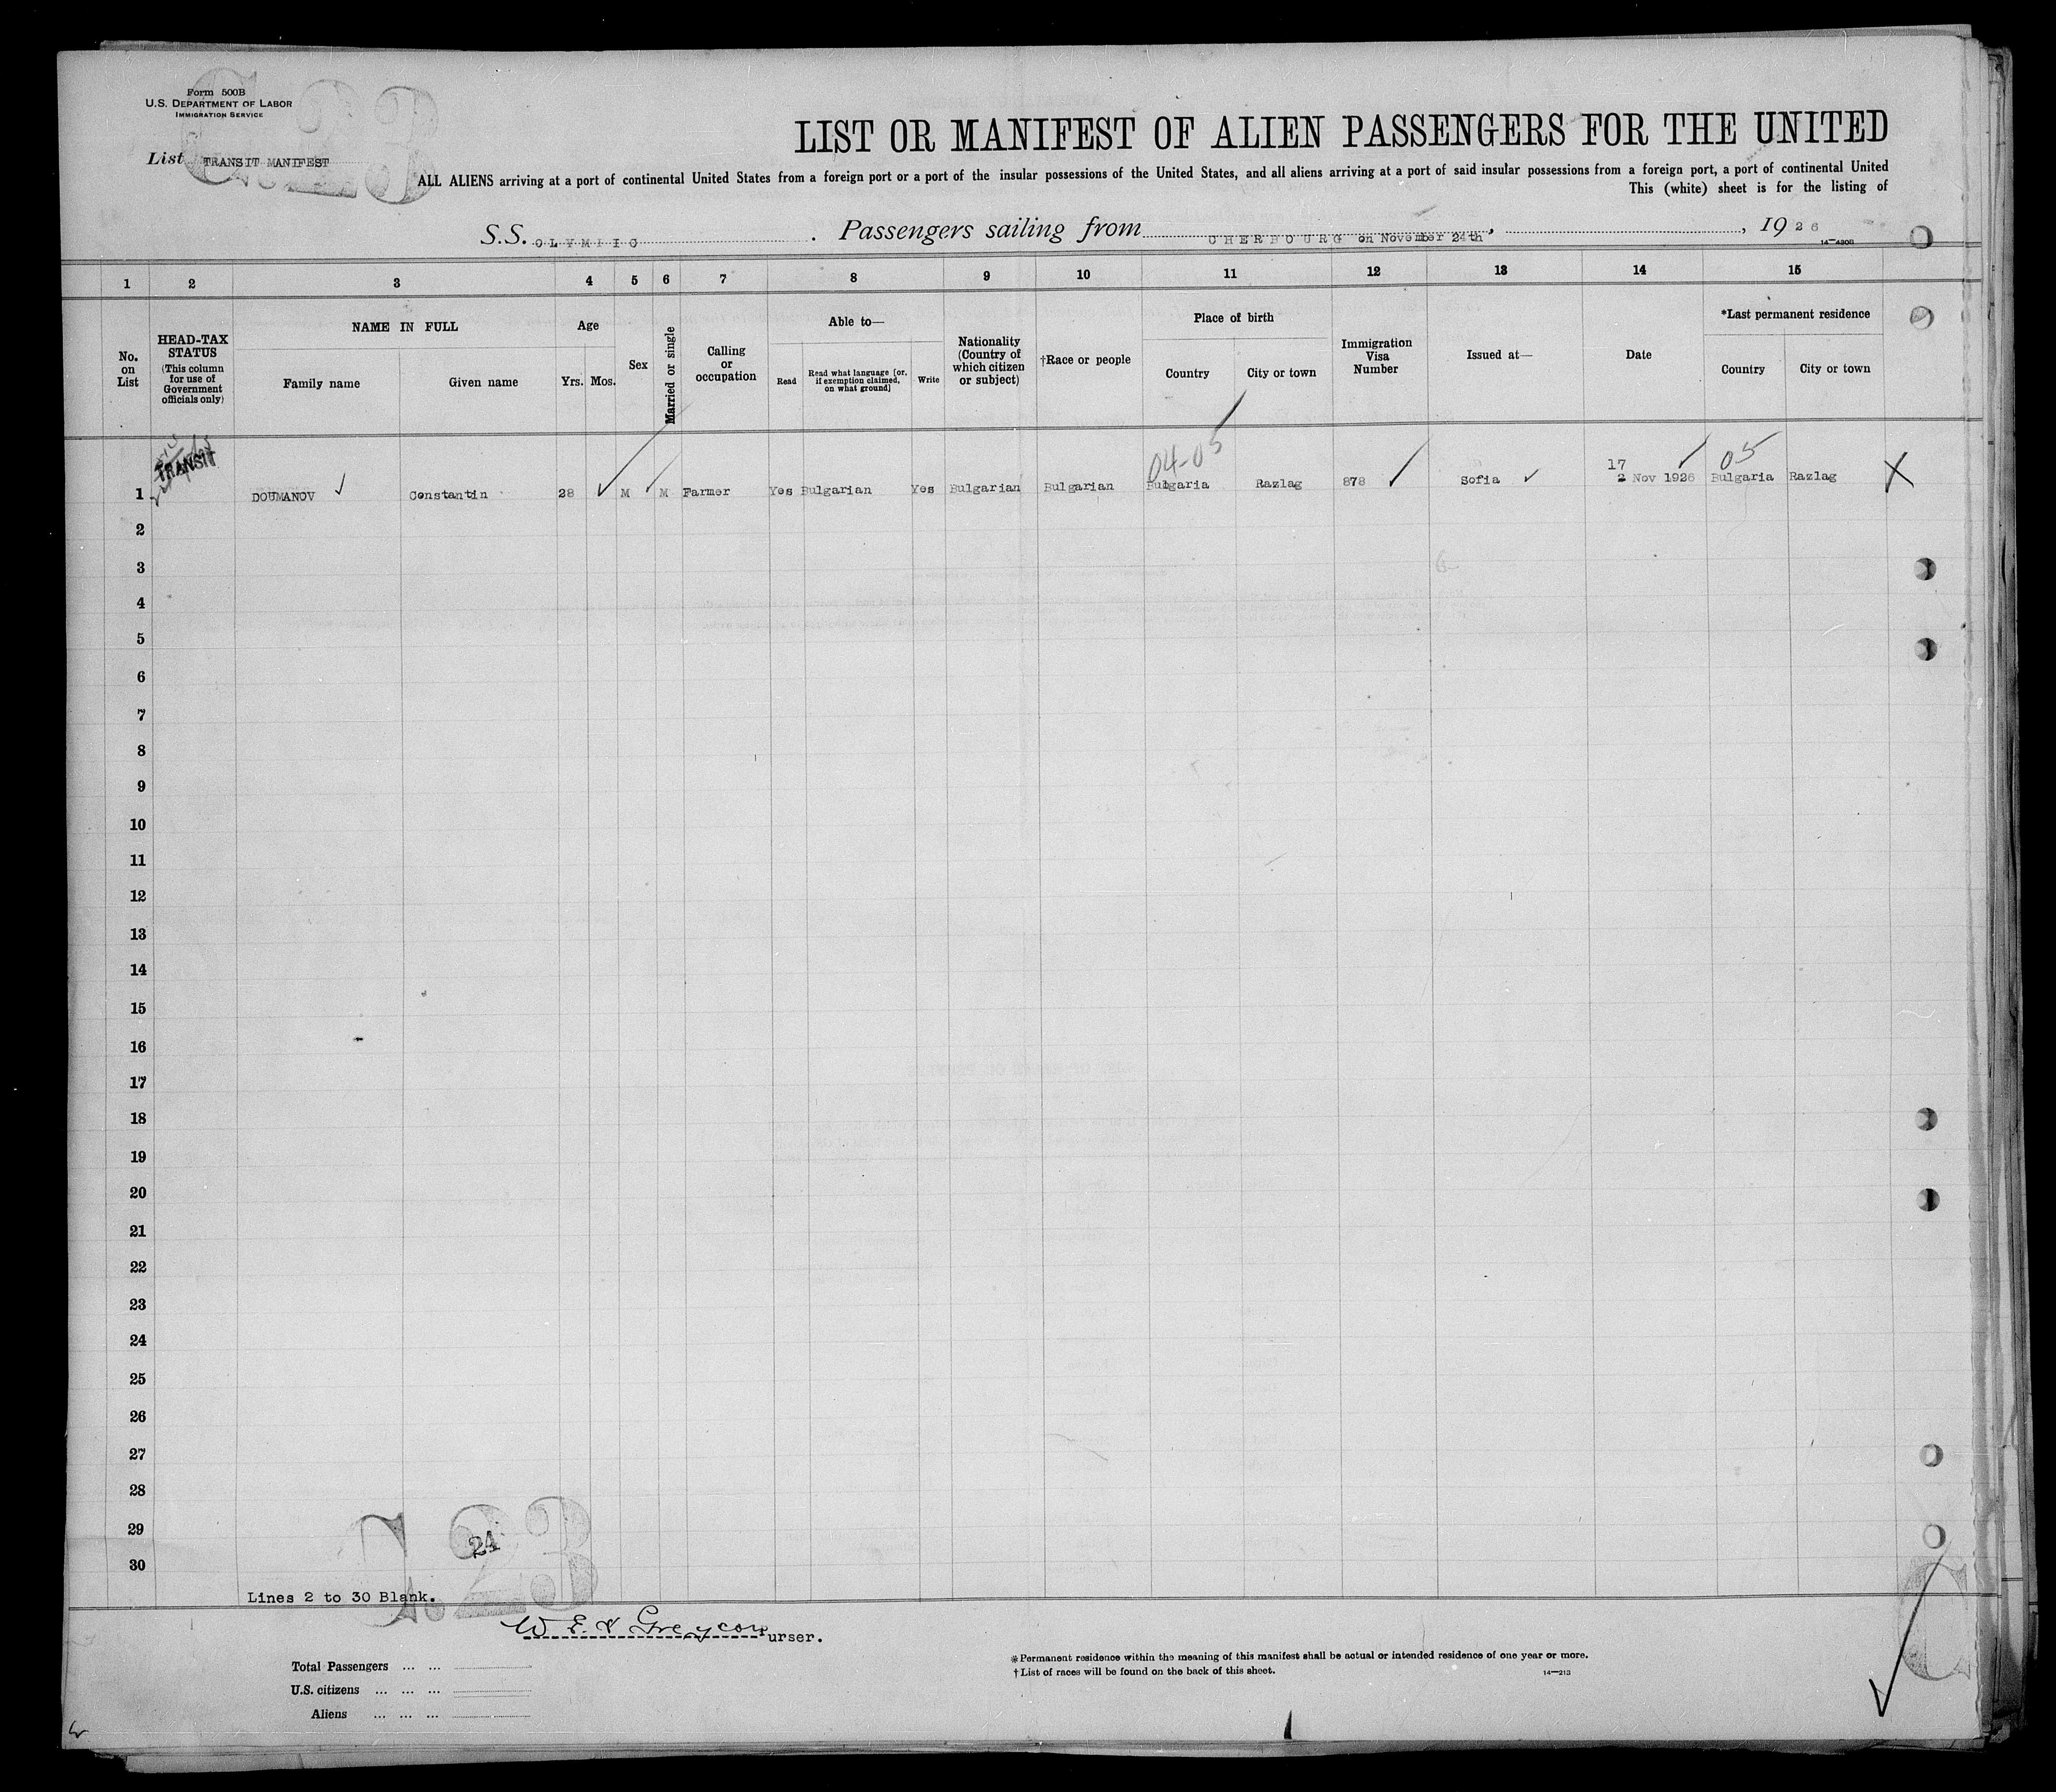 Form 500B
U.S. DEPARTMENT OF LABOR
IMMIGRATION SERVICE
List TRANSIT MANIFEST
LIST OR MANIFEST OF ALIEN PASSENGERS FOR THE UNITED
ALL ALIENS arriving at a port of continental United States from a foreign port or a port of the insular possessions of the United States, and all aliens arriving at a port of said insular possessions from a foreign port, a port of continental United
This (white) sheet is for the listing of
S.S. OLYMPIC. Passengers sailing from CHERBOURG on November 24th, , 1926
1 2 3 4 5 6 7 8 9 10 11 12 13 14 15
No. on List
HEAD-TAX STATUS (This column for use of Government officials only)
NAME IN FULL
Family name Given name
Age
Yrs. Mos.
Sex
Married or single
Calling or occupation
Able to—
Read
Read what language [or, if exemption claimed, on what ground]
Write
Nationality (Country of which citizen or subject)
†Race or people
Place of birth
Country City or town
Immigration Visa Number
Issued at—
Date
*Last permanent residence
Country City or town
TRANSIT
04-05
05
17
1 DOUMANOV Constantin 28 M M Farmer Yes Bulgarian Yes Bulgarian Bulgarian Bulgaria Razlag 878 Sofia 2 Nov 1926 Bulgaria Razlag X
2
3
4
5
6
7
8
9
10
11
12
13
14
15
16
17
18
19
20
21
22
23
24
25
26
27
28
29
30
24
Lines 2 to 30 Blank.
urser.
Total Passengers ... ...
U.S. citizens ... ... ...
Aliens ... ... ...
* Permanent residence within the meaning of this manifest shall be actual or intended residence of one year or more.
† List of races will be found on the back of this sheet.
14—213